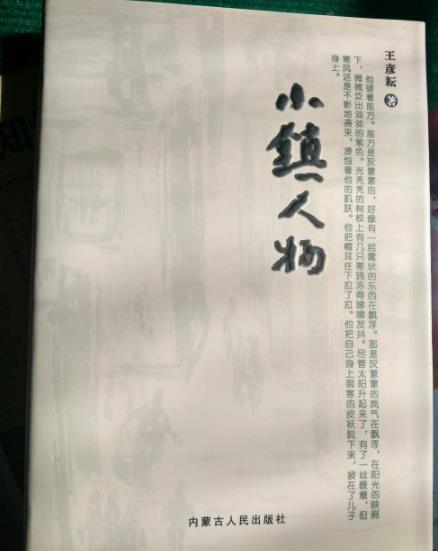 王彦耘 著
他望着前方。前方是灰蒙蒙的，好像有一层雾状的东西在飘浮。那是灰蒙蒙的岚气在飘浮，在阳光的映照
下，微微泛出淡淡的紫色。光秃秃的树枝上有几只寒鸦冻得嗦嗦发抖。尽管太阳升起来了，有了一丝暖意，但
寒风还是不断地袭来，浸蚀着他的肌肤。他把帽耳往下拉了拉。他把自己身上御寒的皮袄脱下来，披在了儿子
身上。
小镇人物
内蒙古人民出版社